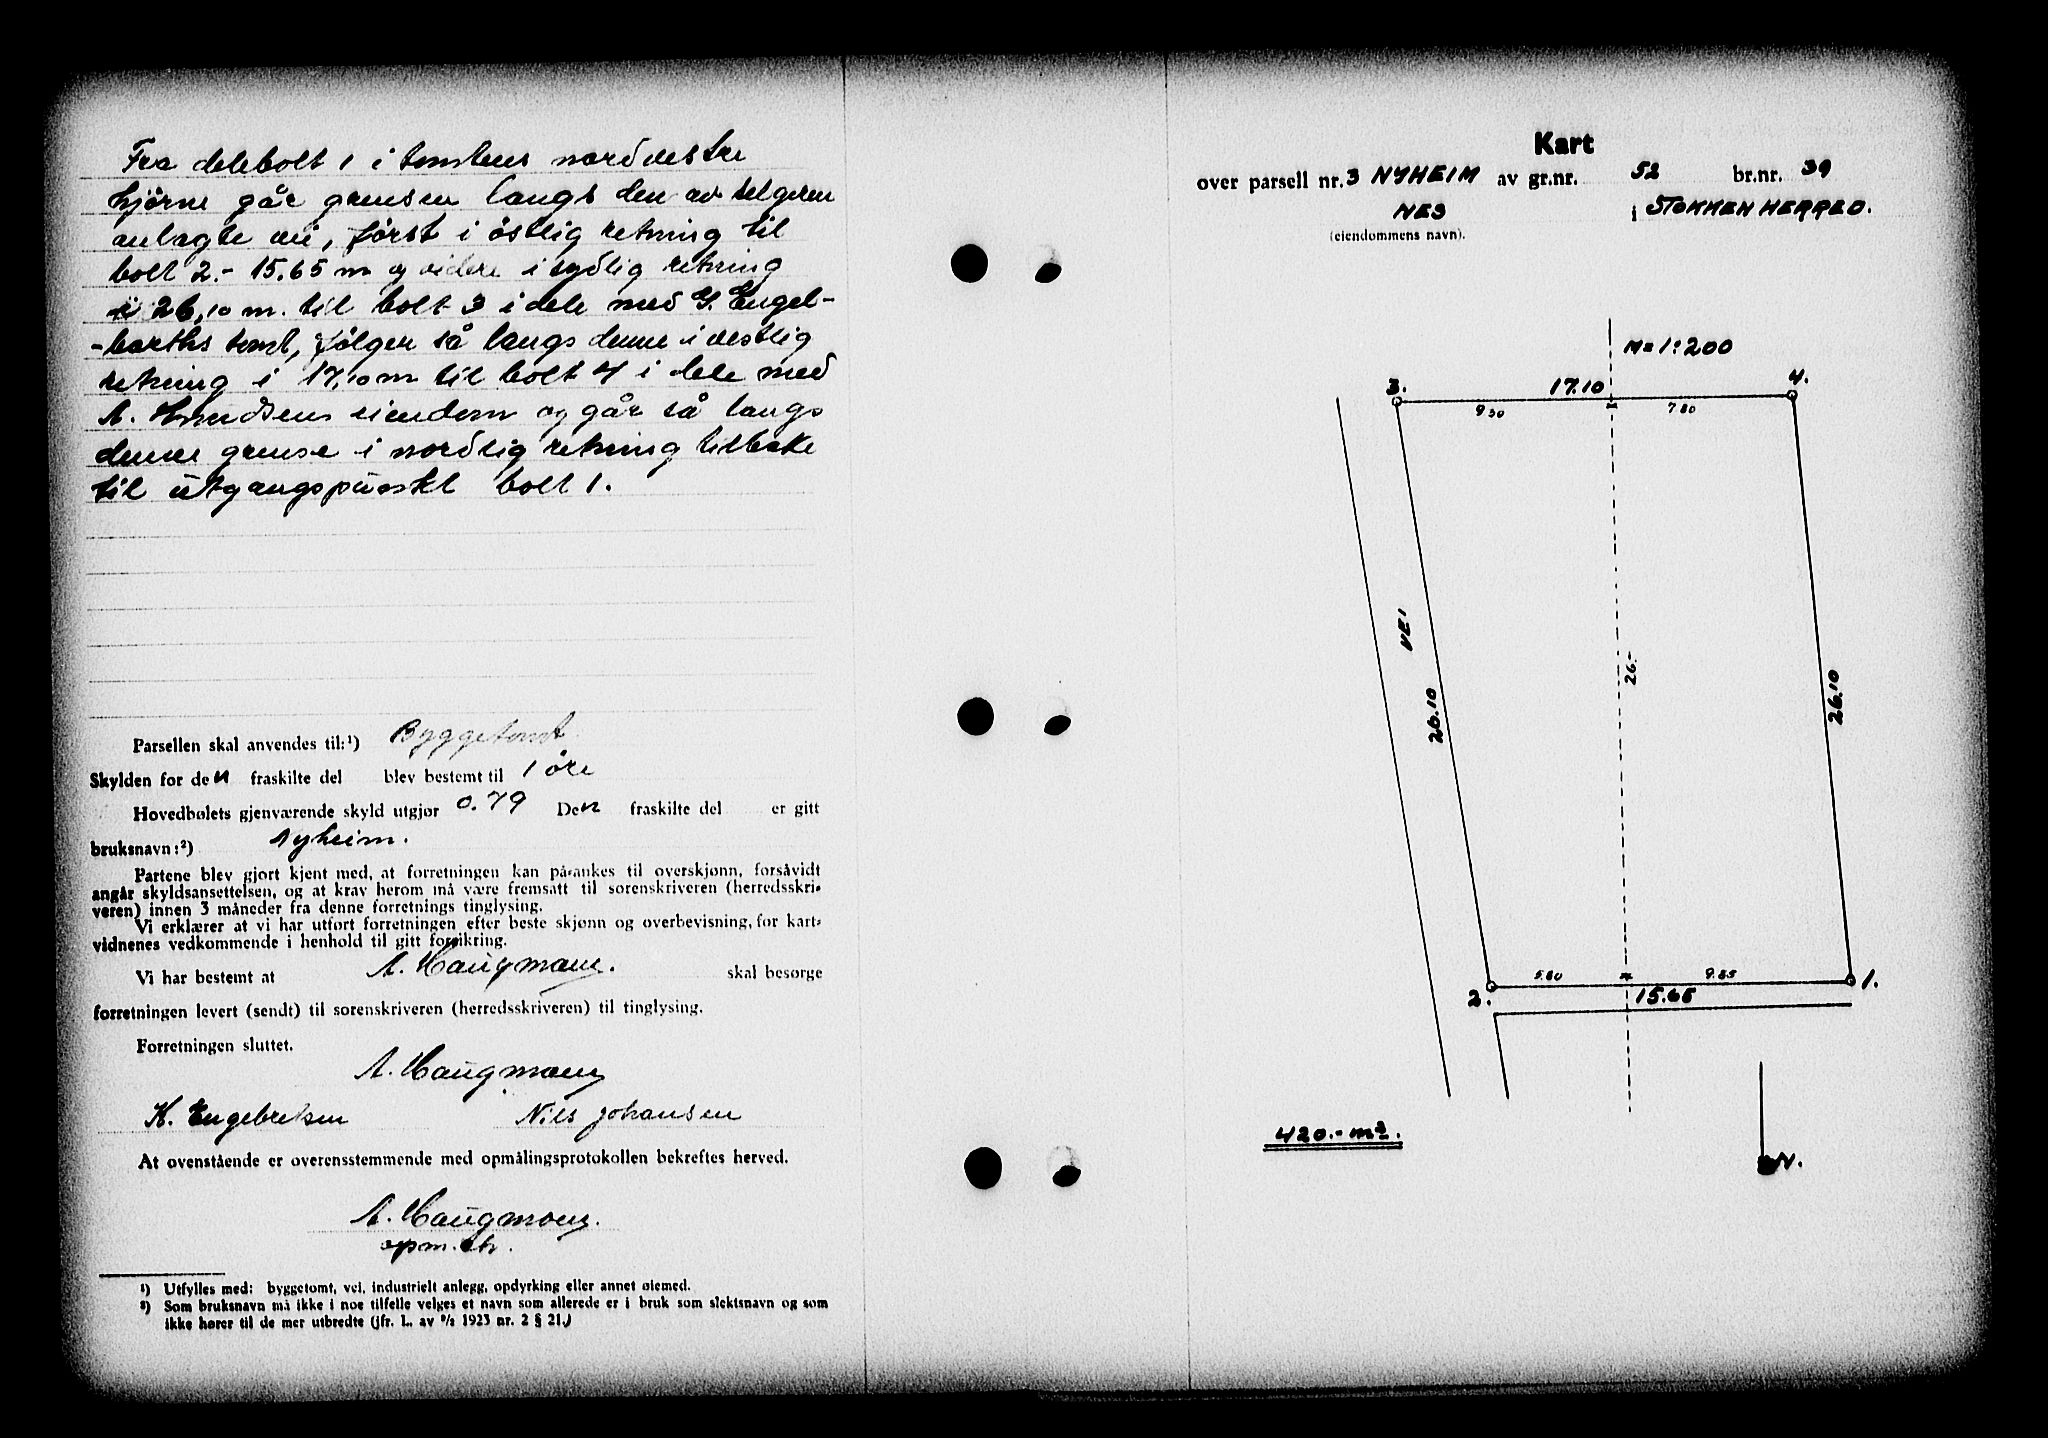 Fra delebolt 1 i tomtens nordvestre
hjørne går grensen langs den av selgeren
anlagte vei, først i østlig retning til
bolt 2.- 15.65 m og videre i sydlig retning
i 26,10 m. til bolt 3 i dele med G. Engel-
-barths tomt, følger så langs denne i vestlig
retning i 17,10 m til bolt 4 i dele med
A. Knudsens eiendom og går så langs
denne grense i nordlig retning tilbake
til utgangspunkt bolt 1.
Parsellen skal anvendes til:¹) Byggetomt
Skylden for den fraskilte del blev bestemt til 1 øre
Hovedbølets gjenværende skyld utgjør 0.79 Den fraskilte del er gitt
bruksnavn:²) Nyheim.
Partene blev gjort kjent med, at forretningen kan på-ankes til overskjønn, forsåvidt
angår skyldsansettelsen, og at krav herom må være fremsatt til sorenskriveren (herredsskri-
veren) innen 3 måneder fra denne forretnings tinglysing.
Vi erklærer at vi har utført forretningen efter beste skjønn og overbevisning, for kart-
vidnenes vedkommende i henhold til gitt forsikring.
Vi har bestemt at A. Haugmoen. skal besørge
forretningen levert (sendt) til sorenskriveren (herredsskriveren) til tinglysing.
Forretningen sluttet.
A. Haugmoen
K. Engebretsen Nils Johansen
At ovenstående er overensstemmende med opmålingsprotokollen bekreftes herved.
A. Haugmoen.
opm.
¹) Utfylles med: byggetomt, vei, industrielt anlegg, opdyrking eller annet øiemed.
²) Som bruksnavn må ikke i noe tilfelle velges et navn som allerede er i bruk som slektsnavn og som
ikke hører til de mer utbredte (jfr. L. av ⁹/₂ 1923 nr. 2 § 21.)
Kart
over parsell nr. 3 NYHEIM av gr.nr. 52 br.nr. 39
NES i STOKKEN HERRED.
(eiendommens navn).
M = 1:200
3. 17.10 4.
9.30 7.80
VEI
26.10
26.-
26.10
5.80 9.85
2. 15.65 1.
420.- m².
N.